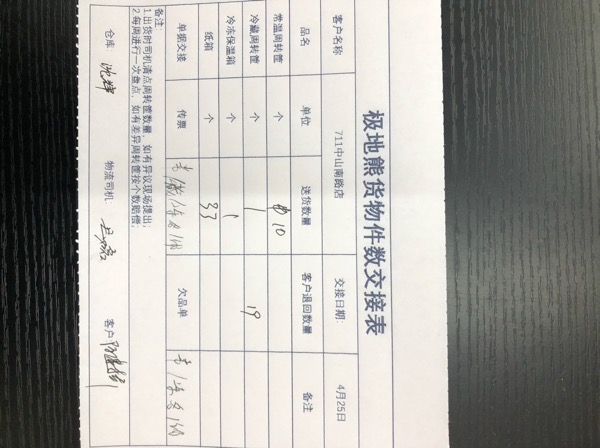 极地熊货物件数交接表
客户名称 711中山南路店 交接日期: 4月25日
品名 单位 送货数量 客户退回数量 备注
常温周转筐 个 10
冷藏周转筐 个 1 19
冷冻保温箱 个 1
纸箱 个 33
单据交接 传票 欠品单
备注:
1.出货时司机清点周转筐数量,如有异议现场提出;
2.每周进行一次盘点,如有差异周转筐按个数赔偿;
仓库: 物流司机: 客户: